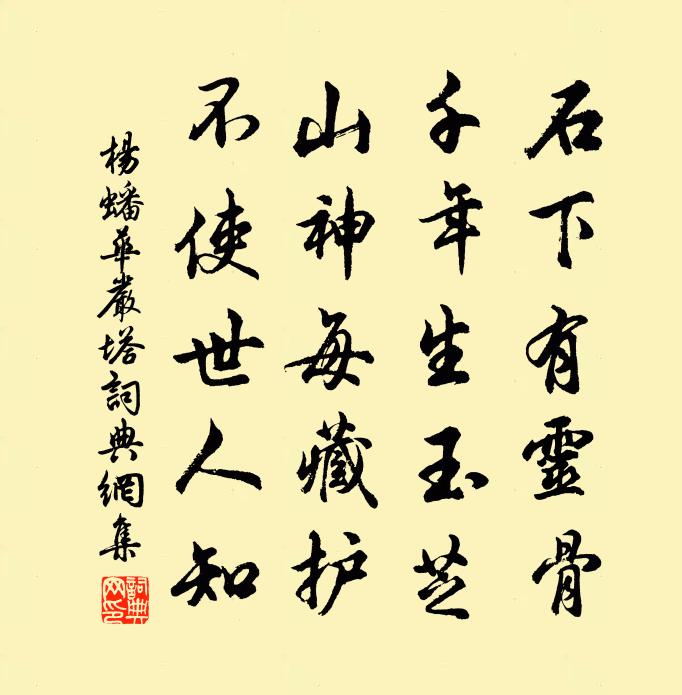 石下有靈骨
千年生玉芝
山神每藏护
不使世人知
楊蟠華嚴塔詞典網集
詞典
网印